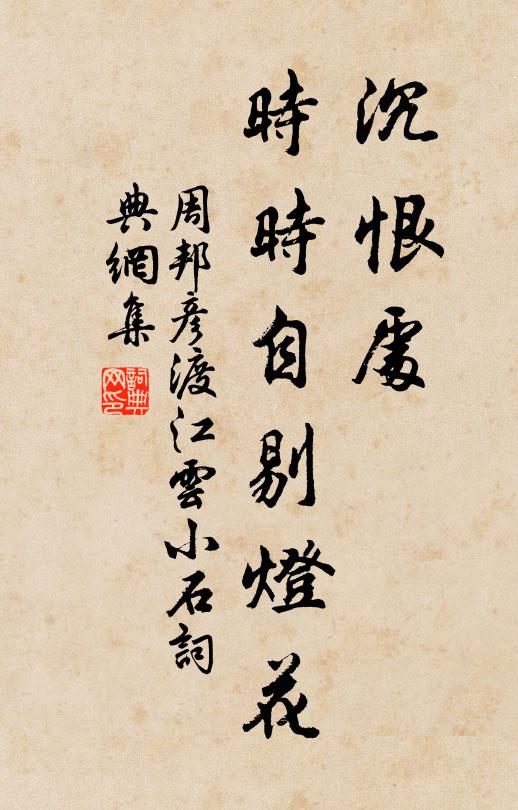 沉恨處
時時自剔燈花
周邦彥渡江雲小石詞
典網集
詞典網印